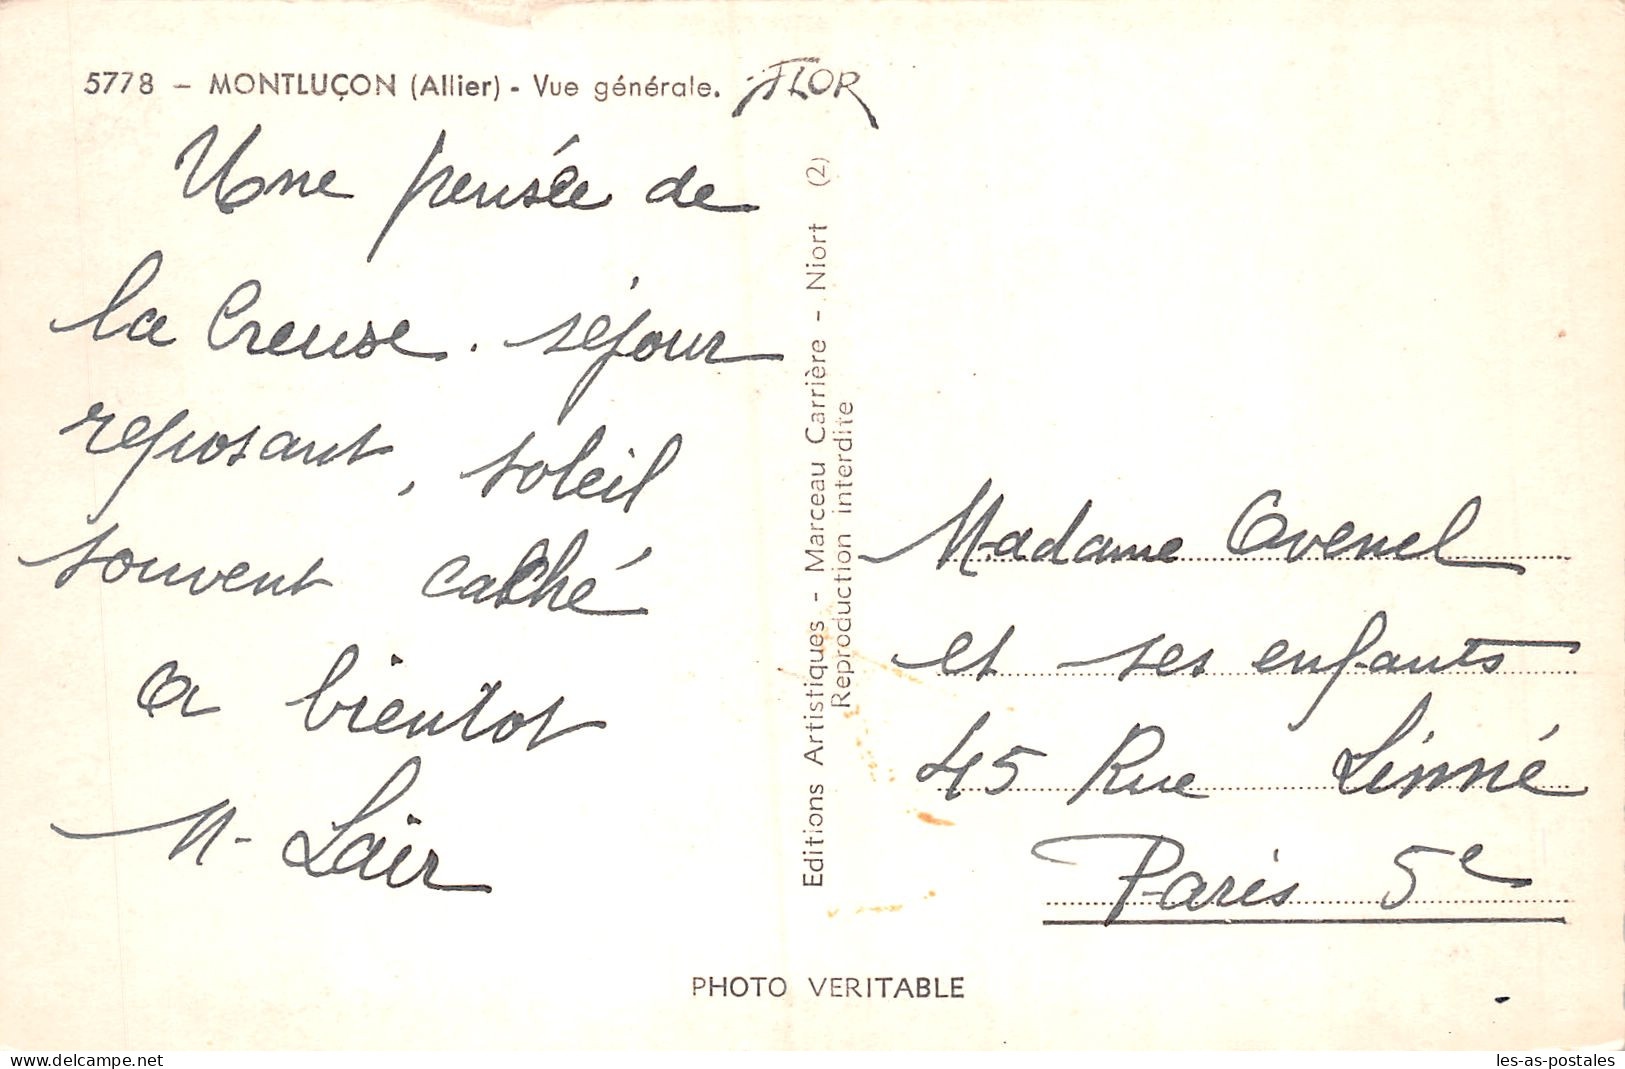 5778 – MONTLUÇON (Allier) - Vue générale.
FLOR
Une pensée de
la Creuse. séjour
reposant, soleil
souvent caché
a bientot
N. Lair
Editions Artistiques - Marceau Carrière - Niort (2)
Reproduction interdite
Madame Avenel
et ses enfants
45 Rue Linné
Paris 5e
PHOTO VERITABLE
www.delcampe.net
les-as-postales